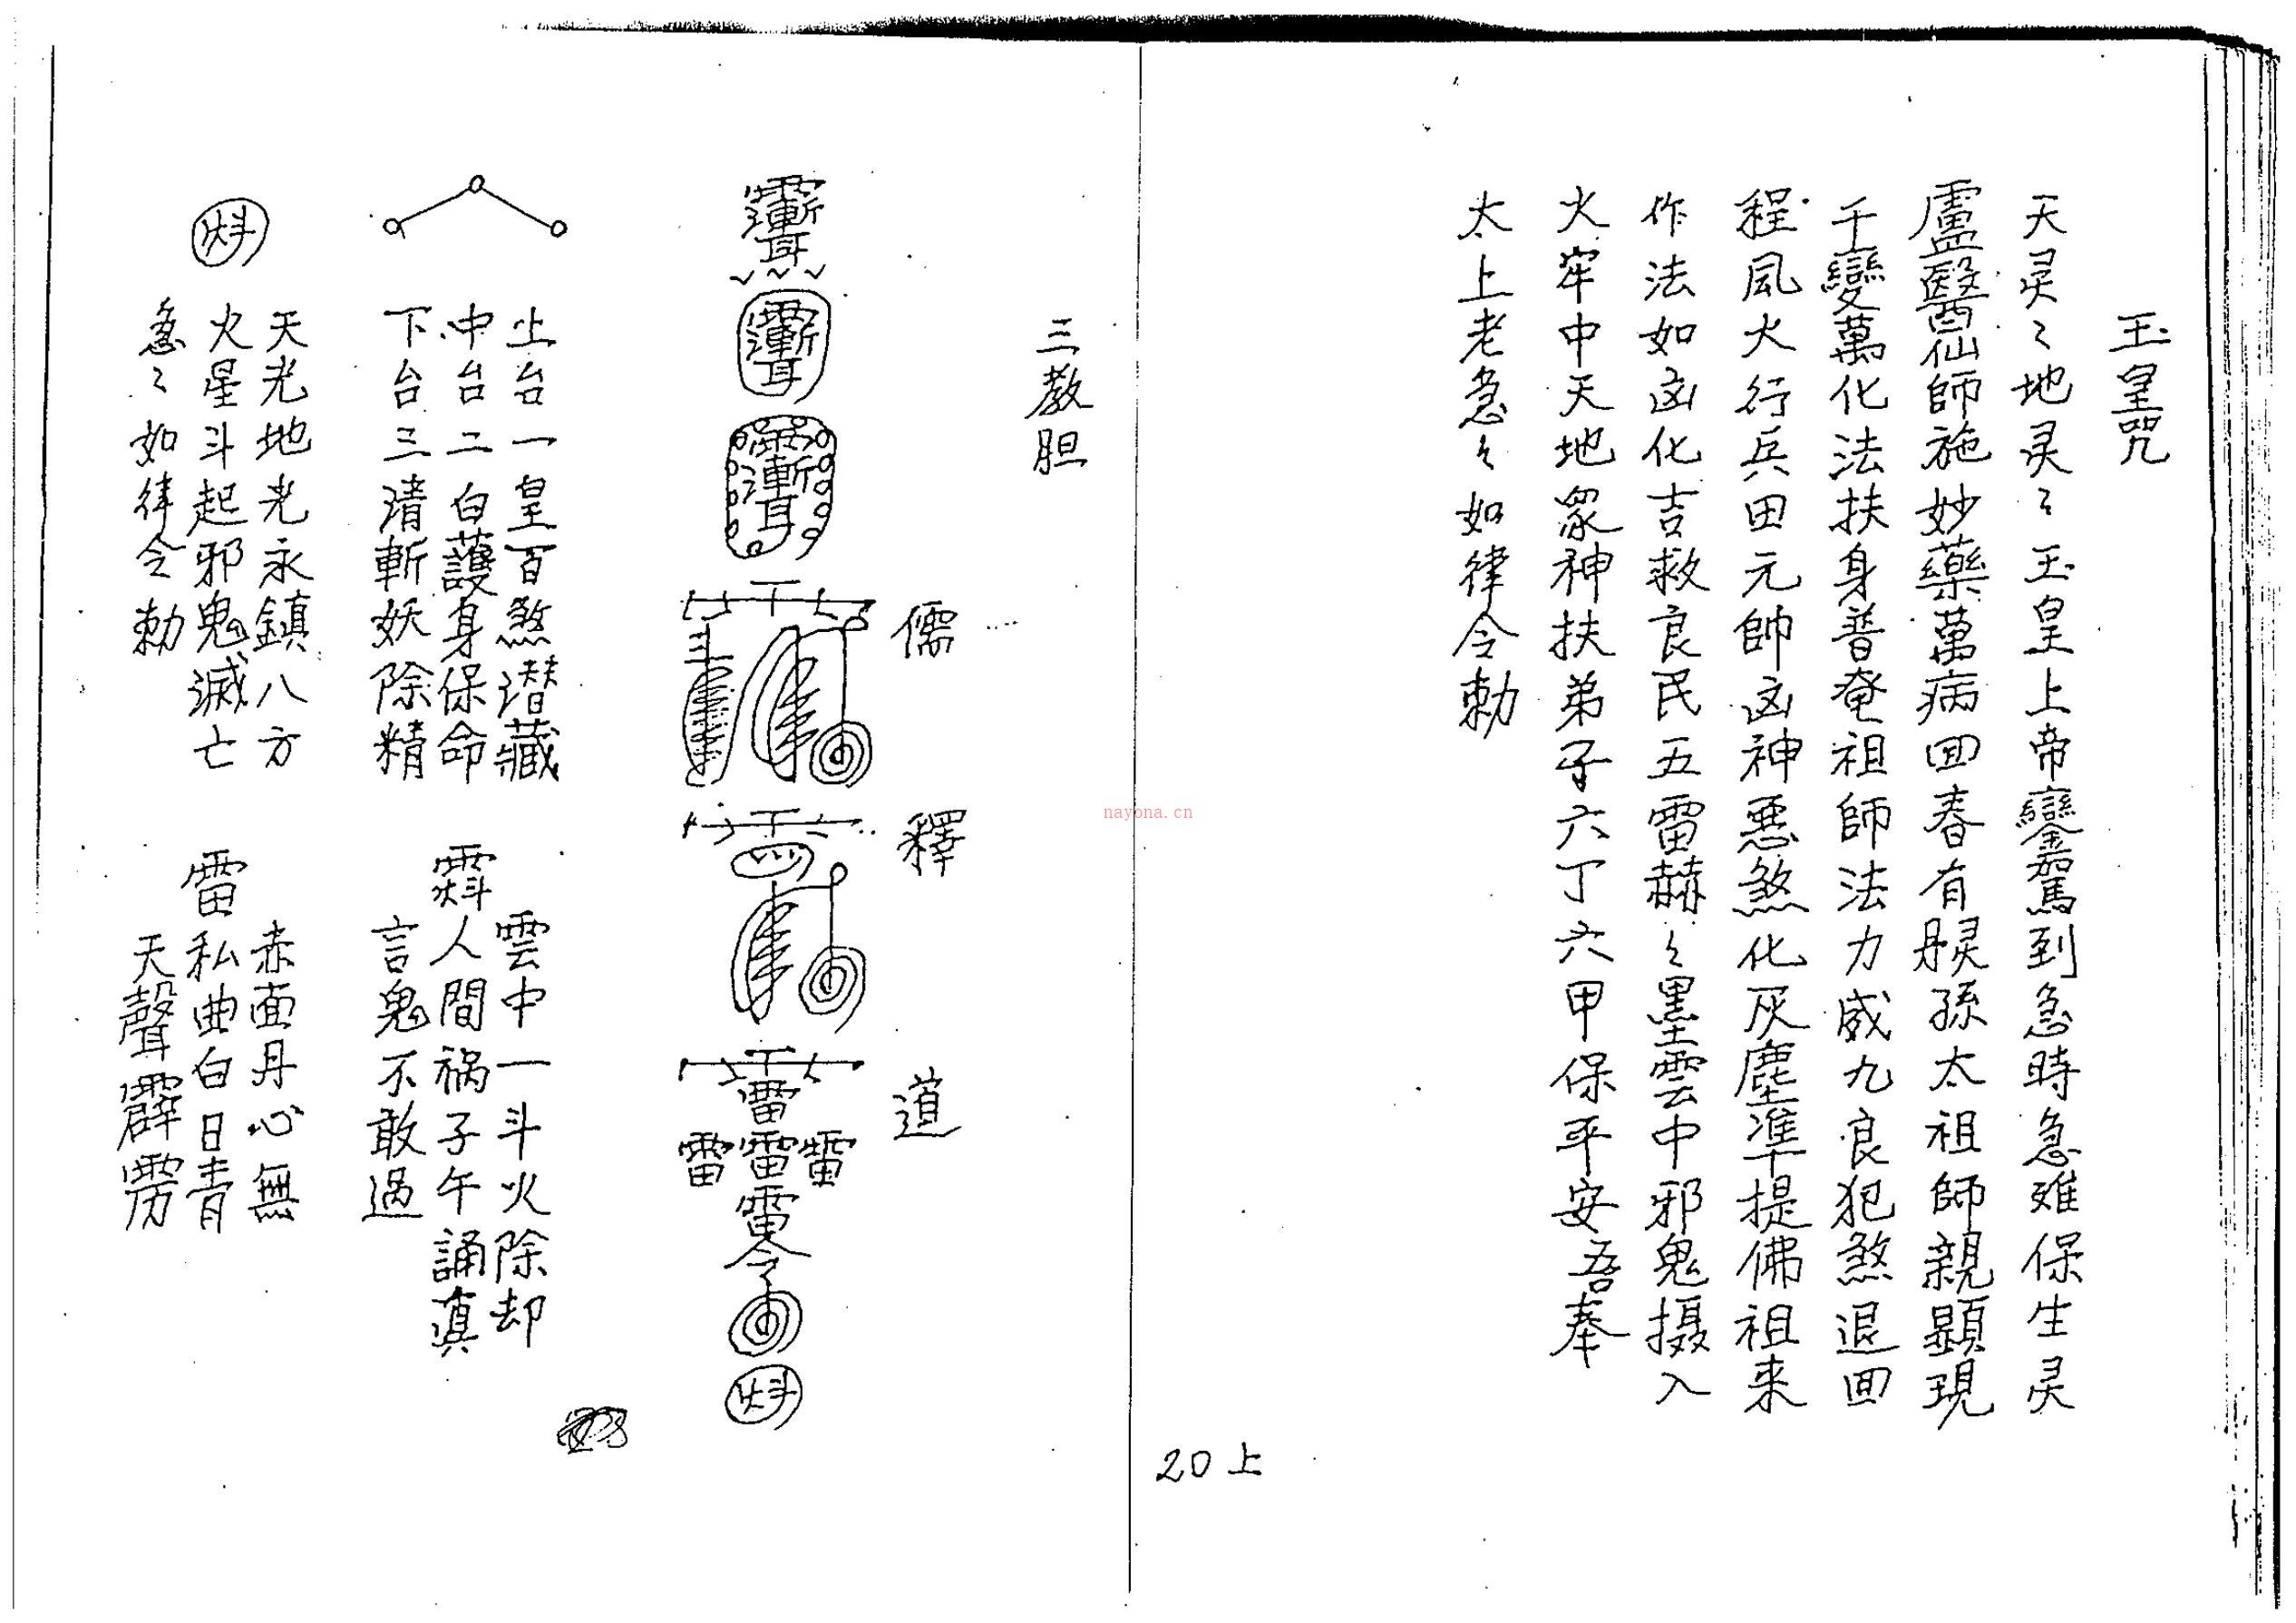 玉皇咒
天灵〻地灵〻玉皇上帝鑾駕到急時急难保生灵
盧醫仙師施妙藥萬病回春有灵孫太祖師親顯現
千變萬化法扶身普奄祖師法力威九良犯煞退回
程風火行兵田元帥凶神悪煞化灰塵準提佛祖来
作法如凶化吉救良民五雷赫〻墨雲中邪鬼摄入
火牢中天地眾神扶弟子六丁六甲保平安吾奉
太上老急〻如律令勅
20上
三教胆
儒
釋
道
雷
雷雷雷
雷
令
上台一皇百煞潜藏
中台二白護身保命
下台三清斬妖除精
雲中一斗火除却
人間祸子午誦真
言鬼不敢過
天光地光永鎮八方
火星斗起邪鬼滅亡
急〻如律令勅
雷
赤面丹心無
私曲白日青
天聲霹雳
nayona.cn